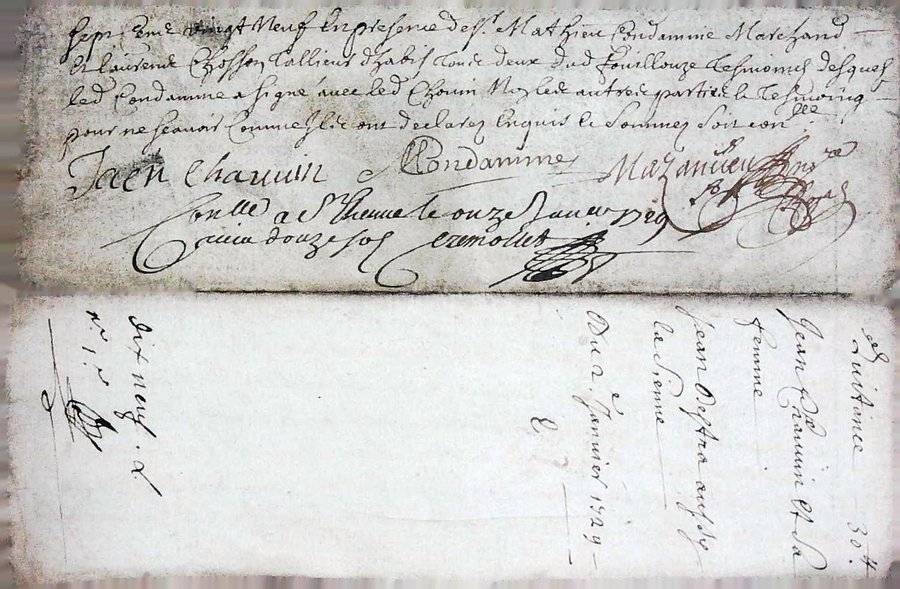 sept Cent vingt Neuf En presence de sr. Mathieu Condamine Marchand
Et laurens Chosson Tallieur dhabis Tous deux dud fouillouze Tesmoins desquels
led Condamine a signé avec led Chouin Non led autres parties le Tesmoing
pour ne scavoir Comme Ils ont declarez Enquis & sommez soit con.lle
Jaen Chauuin MCondamine Mazancieu
Conllé a St Etienne le onze Januier 1729
Receu douze sols
Quitance 30#
Jean Chauuin Et sa
femme
Jean
la sienne
Du 2e Januier 1729
dix neuf